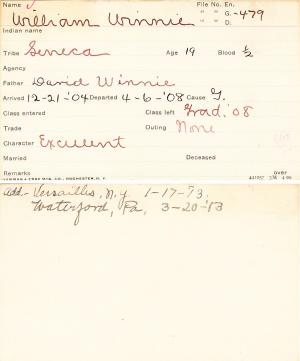 Name J. File No. En.
William Winnie " " G. -479
" " D.
Indian name
Tribe Seneca Age 19 Blood 1/2
Agency
Father David Winnie
Arrived 12-21-'04 Departed 4-6-'08 Cause G.
Class entered Class left Grad. '08
Trade Outing None
Character Excellent
Married Deceased
Remarks over
Add.- Versailles, N.Y. 1-17-'13.
Waterford, Pa, 3-20-'13